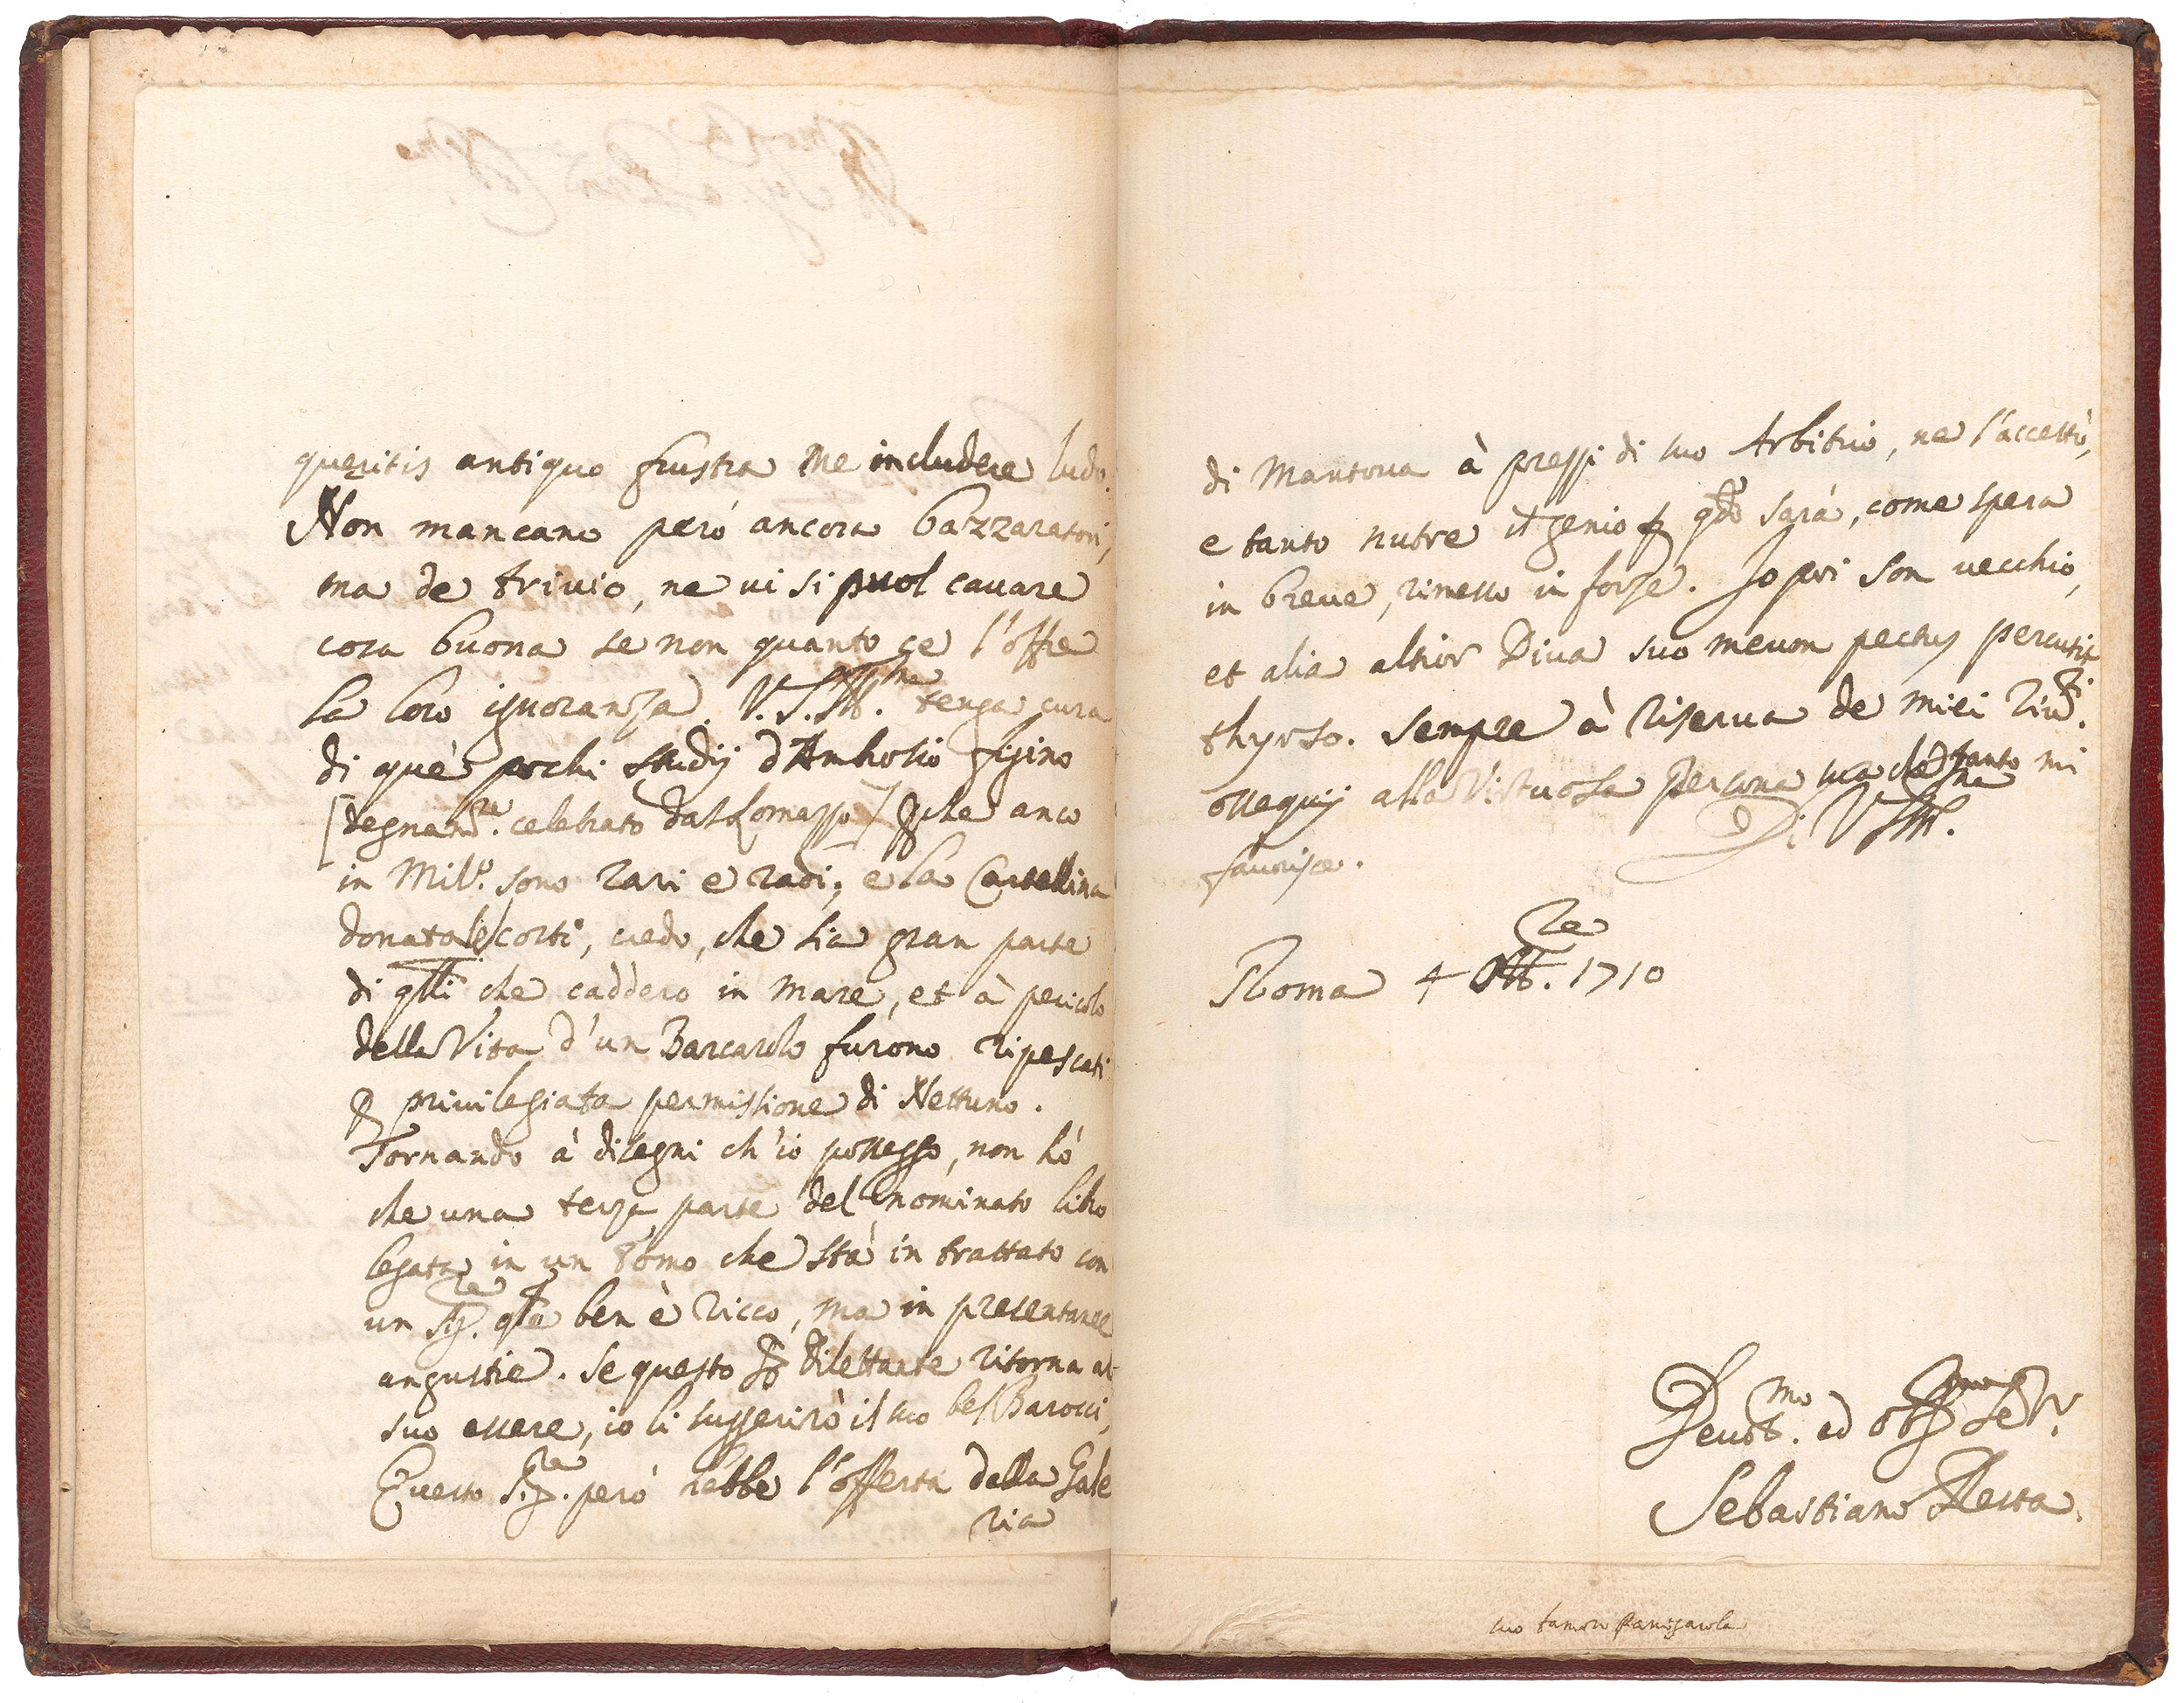 queritis antiquo frustra me includere ludo.
Non mancano però ancora bazzaratori,
ma de trivio, ne vi si puol cavare
cosa buona se non quanto ce l'offre
la loro ignoranza. V.S. Ill.ma tenga cura
di què pochi studij d'Ambrosio figino
[degnam.te celebrato dal Lomazzo] perche anco
in Mil.o sono rari e radi; e la Cartellina
donatale corti, credo, che sia gran parte
di qlli che caddero in mare, et à pericolo
della Vita d'un Barcarolo furono ripescati
per privilegiata permissione di Nettuno.
Tornando à disegni ch'io possesso, non hò
che una terza parte del nominato libro
legata in un tomo che stà in trattato con
un Sig.re qle ben è ricco, ma in presentanee
angustie. Se questo Sig. dilettante ritorna al
suo essere, io li suggerirò il suo bel Barocci,
Questo Sig.re però hebbe l'offerta della Gale
ria
di Mantova à prezzi di suo Arbitrio, ne l'accettò,
e tanto nutre il genio per qdo sarà, come spera
in breve, rimesso in forze. Io poi son vecchio,
et alia altior Diva suo meum pectus percutit
thyrso. Sempre à riserva de miei riv.ti
ossequij alla Virtuosa persona sua che tanto mi
favorisce. Di V.S. Ill.ma
Roma 4 Ott.re 1710
Devot.mo ed obb.mo Ser.
Sebastiano Resta.
suo tamoro Panigarola